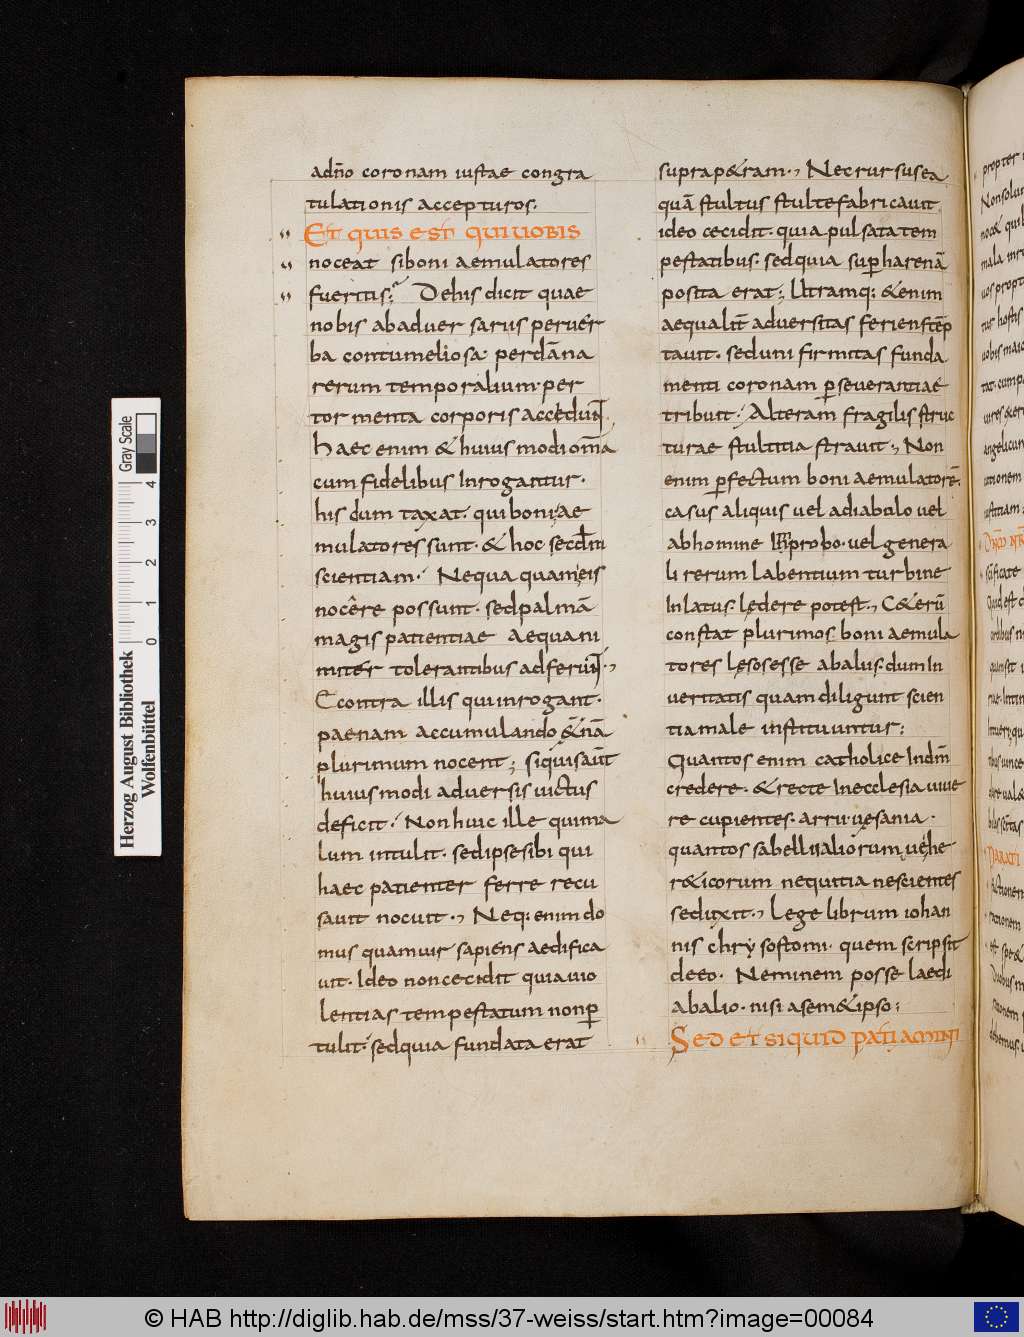 adno coronam iustae congra
tulationis accepturos.
Et quis est qui uobis
noceat si boni aemulatores
fueritis; De his dicit quae
nobis ab aduer sarus peruer
ba contumeliosa perdāna
rerum temporalium per
tormenta corporis accedunt
Haec enim & huius modi oma
cum fidelibus Inrogantur.
his dum taxat. qui boni ae
mulatores sunt. & hoc secdm
scientiam. Nequaquam eis
nocêre possunt. sed palmā
magis patientiae aequani
miter tolerantibus adferunt.,
E contra illis qui inrogant.
paenam accumulando &nā
plurimum nocent; si quis aūt
huius modi aduersis uictus
deficit. Non huic ille qui ma
lum intulit. sed ipse sibi qui
haec patienter ferre recu
sauit nocuit., Neq; enim do
mus quam uir sapiens aedifica
uit. Ideo non cecidit quia uio
lentias tempestatum non p
tulit. sed quia fundata erat
supra p&ram., Nec rursus ea
quā stultus stulte fabricauit
ideo cecidit. quia pulsata tem
pestatibus. sed quia sup harenā
posita erat; Utramq; & enim
aequalit aduersitas feriens tēp
tauit. sed uni firmitas funda
menti coronam pseuerantiae
tribuit. Alteram fragilis struc
turae stultitia strauit., Non
enim pfectum boni aemulatorē.
casus aliquis uel a diabolo uel
ab homine Inprobo. uel genera
li rerum labentium turbine
Inlatus. ledere potest., C&erū
constat plurimos boni aemula
tores lęsos esse ab alus. dum In
ueritatis quam diligunt scien
tia male instituuntur;
Quantos enim catholice In dnm
credere. & recte In ecclesia uiue
re cupientes. arru uesania.
quantos sabellii aliorum uę he
r&icorum nequitia nescientes
seduxit., Lege librum iohan
nis chrysostomi. quem scripsit
de eo. Neminem posse laedi
ab alio. nisi a sem&ipso;
Sed et si quid patiamini
Herzog August Bibliothek
Wolfenbüttel
0 1 2 3 4
Gray Scale
© HAB http://diglib.hab.de/mss/37-weiss/start.htm?image=00084